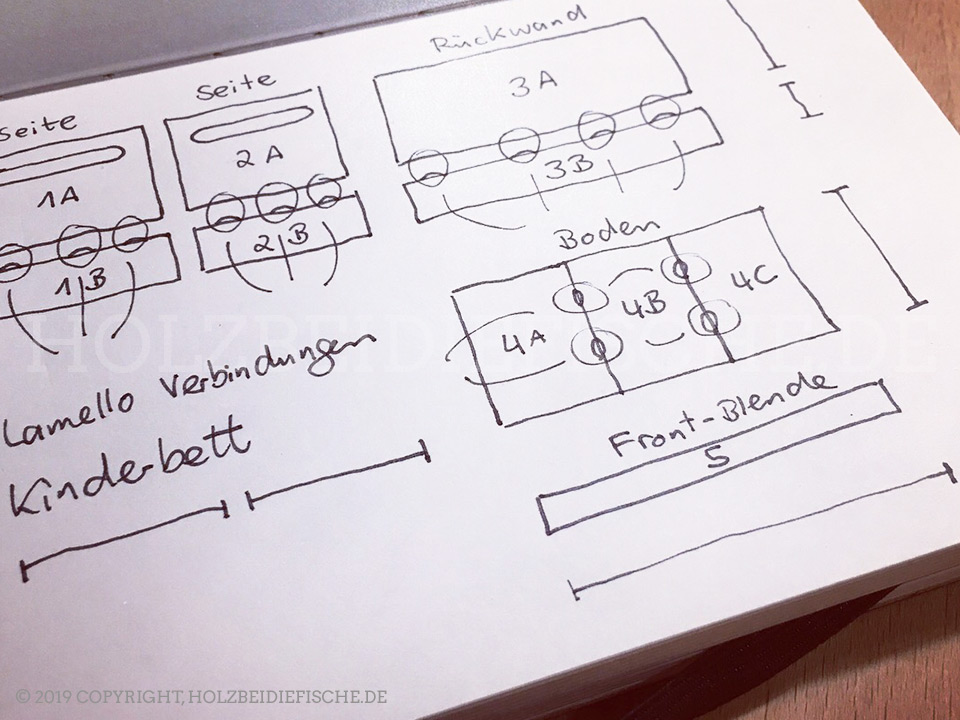 Seite
1A
1 B
Seite
2 A
2 B
Rückwand
3A
3B
Boden
4A
4B
4C
Front-Blende
5
Lamello Verbindungen
Kinderbett
HOLZBEIDIEFISCHE.DE
© 2019 COPYRIGHT, HOLZBEIDIEFISCHE.DE